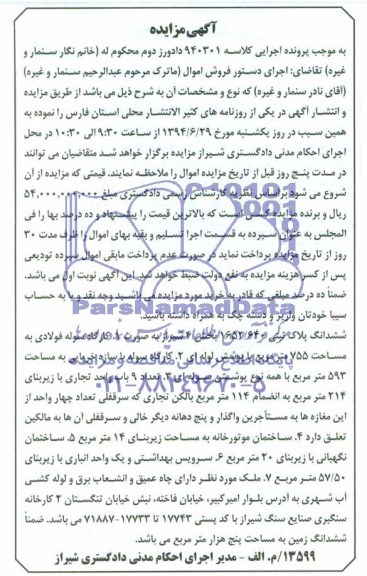 آگهی مزایده
به موجب پرونده اجرایی کلاسه ۹۴۰۳۰۱ دادورز دوم محکوم له (خانم نگار سنمار و
غیره) تقاضای: اجرای دستور فروش اموال (ماترک مرحوم عبدالرحیم سنمار و غیره)
(آقای نادر سنمار و غیره) که نوع و مشخصات آن به شرح ذیل می باشد از طریق مزایده
و انتشار آگهی در یکی از روزنامه های کثیر الانتشار محلی استان فارس را نموده به
همین سبب در روز یکشنبه مورخ ۱۳۹۴/۶/۲۹ از ساعت ۹:۳۰ الی ۱۰:۳۰ در محل
اجرای احکام مدنی دادگستری شیراز مزایده برگزار خواهد شد متقاضیان می توانند
در مدت پنج روز قبل از تاریخ مزایده اموال را ملاحظه نمایند. قیمتی که مزایده از آن
شروع می شود براساس نظریه کارشناس رسمی دادگستری مبلغ ۵۴,۰۰۰,۰۰۰,۰۰۰
ریال و برنده مزایده کسی است که بالاترین قیمت را پیشنهاد و ده درصد بها را فی
المجلس به عنوان سپرده به قسمت اجرا تسلیم و بقیه بهای اموال را ظرف مدت ۳۰
روز از تاریخ مزایده پرداخت نماید در صورت عدم پرداخت مابقی اموال سپرده تودیعی
پس از کسر هزینه مزایده به نفع دولت ضبط خواهد شد. این آگهی نوبت اول می باشد.
ضمناً ده درصد مبلغی که قادر به خرید مورد مزایده می باشید وجه نقد و یا به حساب
سیبا خودتان واریز و دسته چک به همراه داشته باشید.
ششدانگ پلاک ثبتی ۱۶۵۲/۶۴۰ بخش ۴ شیراز به صورت ۱. کارگاه سوله فولادی به
مساحت ۷۵۵ متر مربع با پوشش لوله ای ۲. کارگاه سوله با سازه خرپایی به مساحت
۵۹۳ متر مربع با همه نوع پوشش سوله ای ۳. تعداد ۹ باب واحد تجاری با زیربنای
۲۱۴ متر مربع به انضمام ۱۱۴ متر مربع بالکن تجاری که سرقفلی تعداد چهار واحد از
این مغازه ها به مستأجرین واگذار و پنج دهانه دیگر خالی و سرقفلی آن ها به مالکین
تعلق دارد ۴. ساختمان موتورخانه به مساحت زیربنای ۱۴ متر مربع ۵. ساختمان
نگهبانی با زیربنای ۲۰ متر مربع ۶. سرویس بهداشتی و یک واحد انباری با زیربنای
۵۷/۵۰ متر مربع ۷. ملک مورد نظر دارای چاه عمیق و انشعاب برق و لوله کشی
آب شهری به آدرس بلوار امیرکبیر، خیابان فاخته، نبش خیابان تنگستان ۲ کارخانه
سنگبری صنایع سنگ شیراز با کد پستی ۱۷۷۴۳ تا ۱۷۷۳۳-۷۱۸۸۷ می باشد. ضمناً
ششدانگ زمین به مساحت پنج هزار متر مربع می باشد.
۱۳۵۹۹/م. الف - مدیر اجرای احکام مدنی دادگستری شیراز
ParsNamadData
پایگاه اطلاع رسانی مناقصه و مزایده
۰۲۱-۸۸۳۴۹۶۷۰-۵